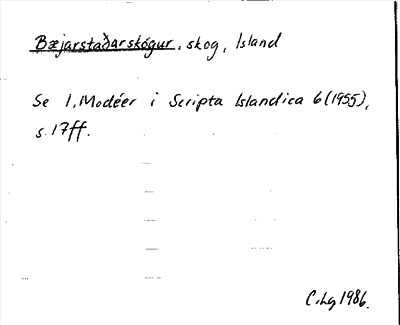 Bæjarstaðarskógur, skog, Island
Se I. Modéer i Scripta Islandica 6 (1955),
s. 17ff.
C. Lg 1986.